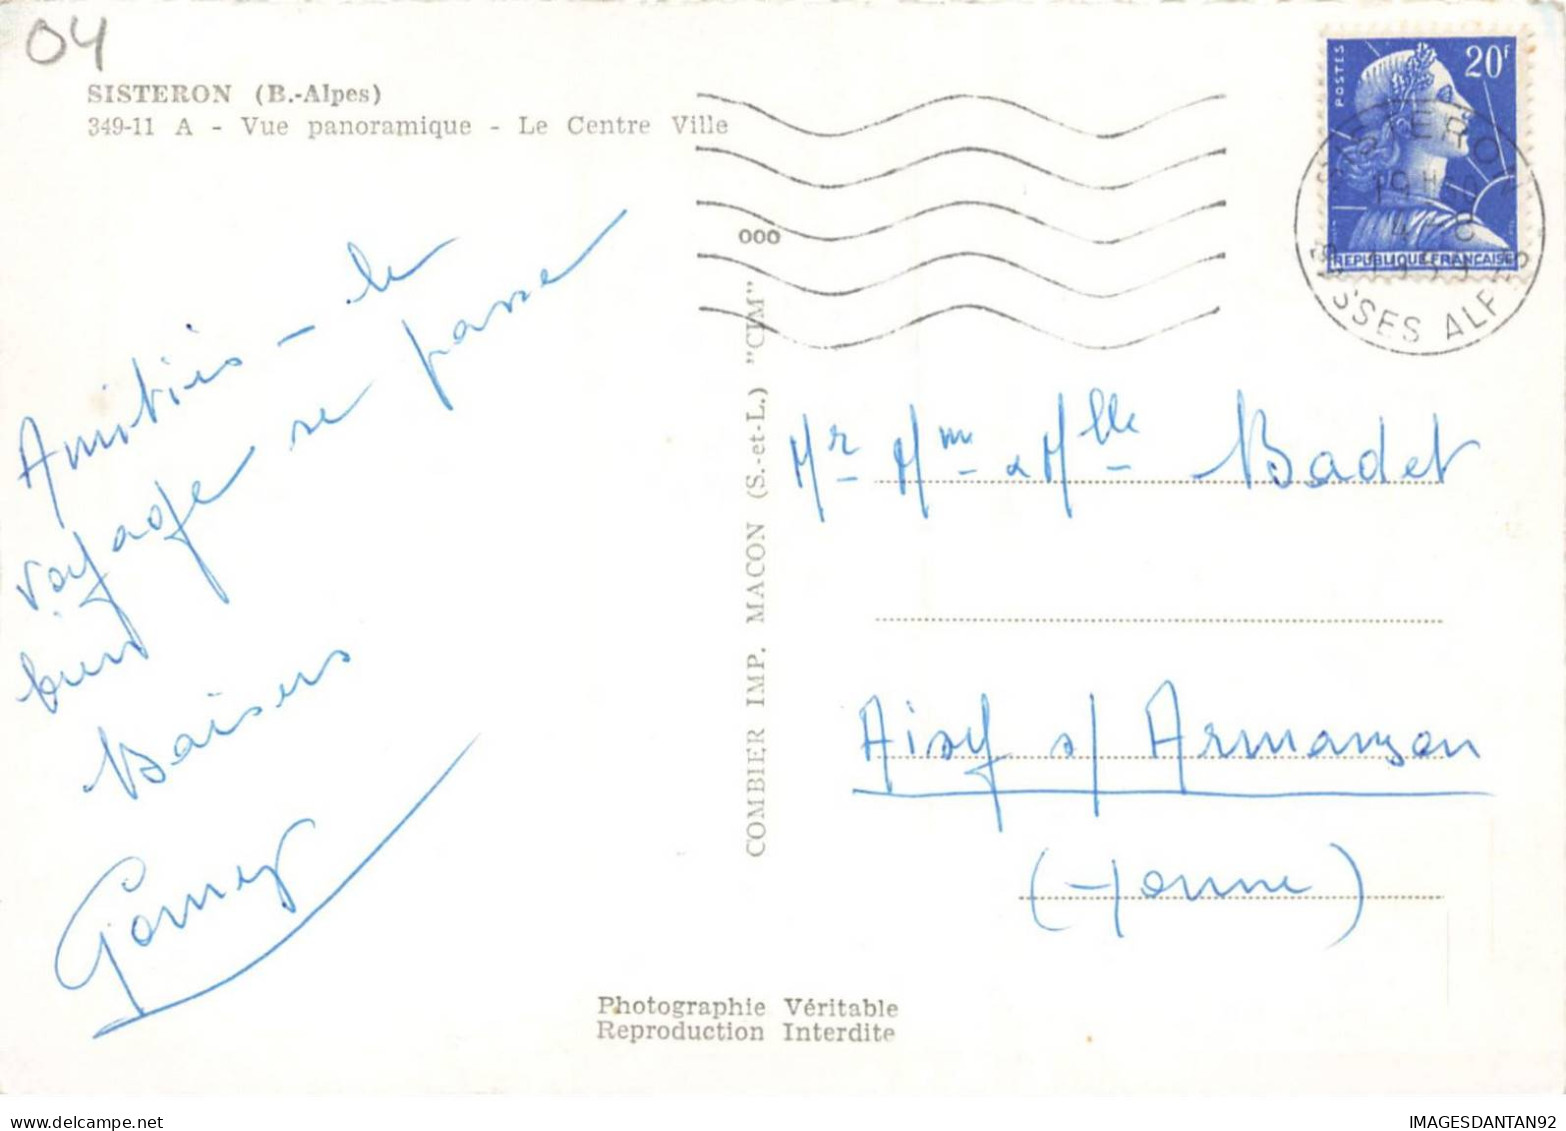 04
SISTERON (B.-Alpes)
349-11 A - Vue panoramique - Le Centre Ville
POSTES
20F
REPUBLIQUE FRANÇAISE
SISTERON
19 H
4-8
1959
BSSES ALPES
000
Amitiés - le
voyage se passe
bien
Baisers
COMBIER IMP. MACON (S.-et-L.) "CIM"
Mr Mm & Mlle Badet
Aisy s/ Armançon
(Yonne)
Photographie Véritable
Reproduction Interdite
IMAGESDANTAN92
delcampe.net